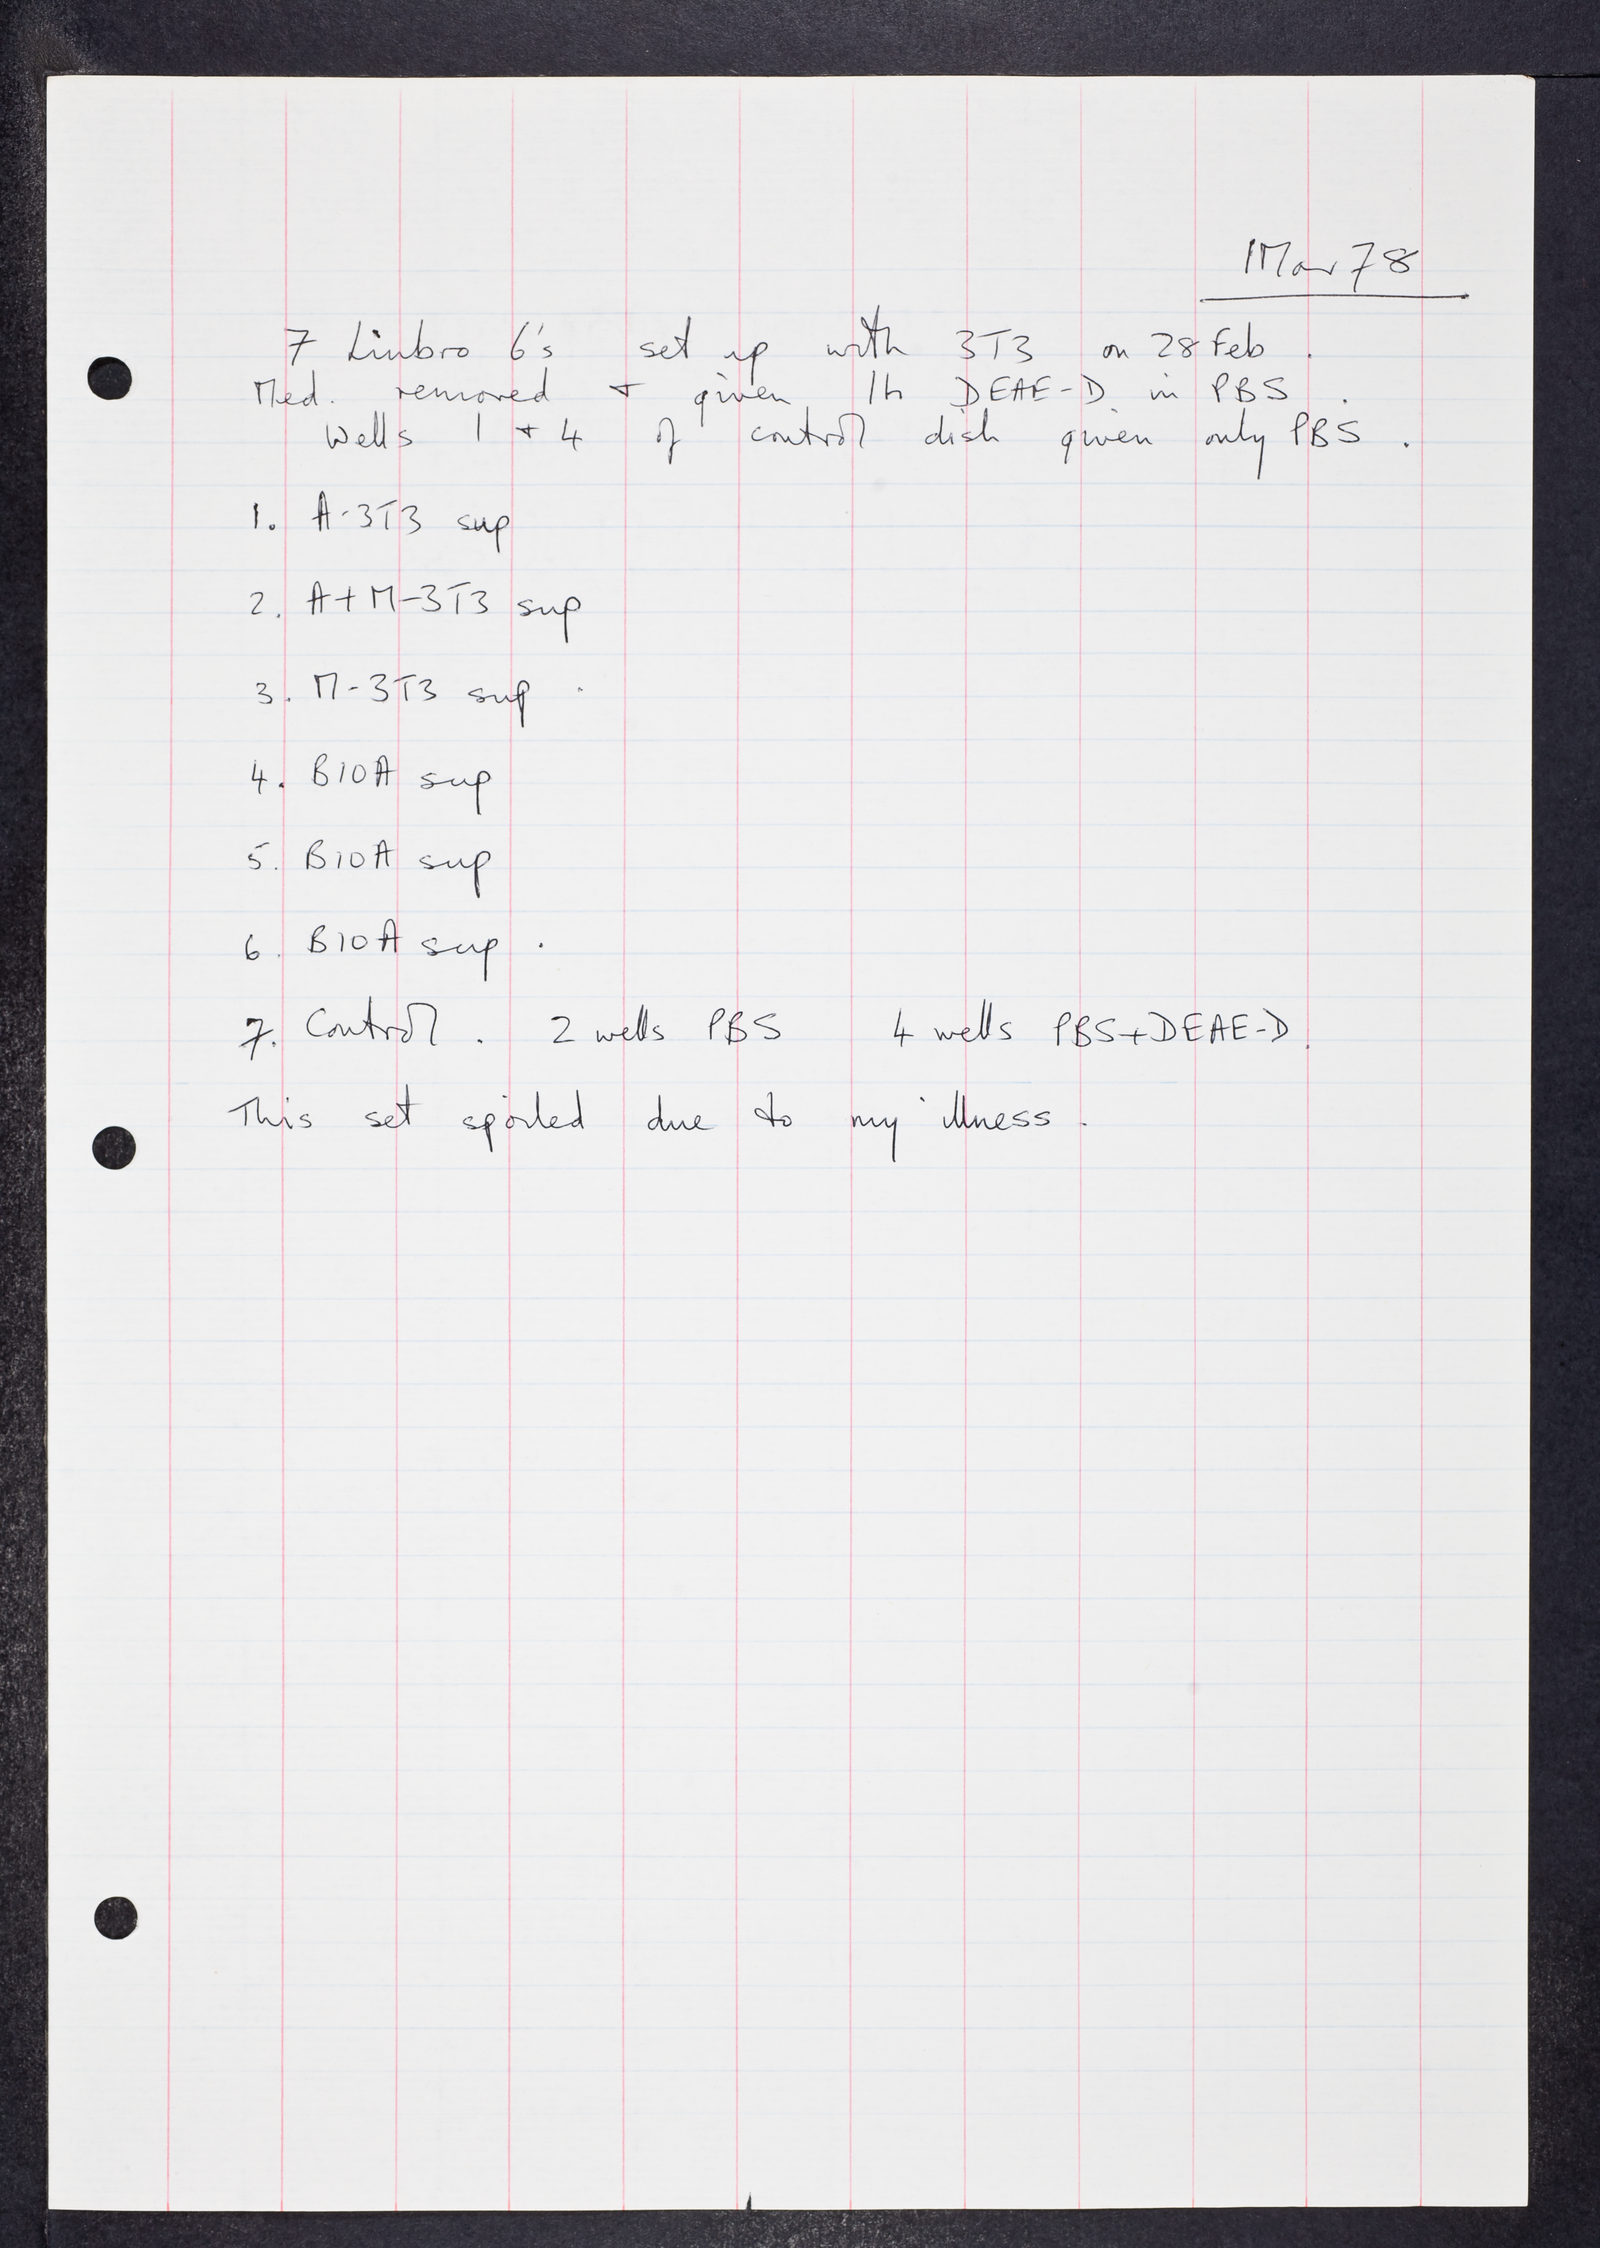 1 Mar 78
7 Linbro 6's set up with 3T3 on 28 Feb.
Med. removed + given 1h DEAE-D in PBS.
Wells 1 + 4 of control dish given only PBS.
1. A-3T3 sup
2. A+M-3T3 sup
3. M-3T3 sup.
4. B10A sup
5. B10A sup
6. B10A sup.
7. Control. 2 wells PBS 4 wells PBS+DEAE-D.
This set spoiled due to my illness.